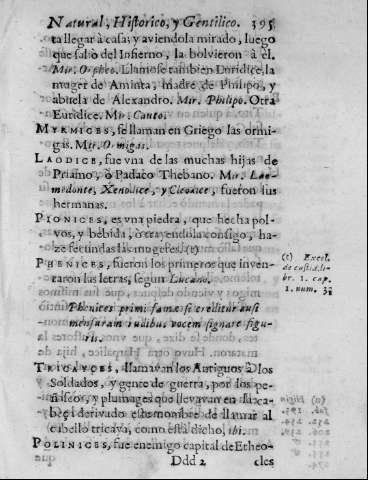 Natural, Historico, y Gentilico. 395
ta llegar à casa; y aviendola mirado, luego
que saliò del Infierno, la bolvieron à èl.
Mir. Orpheo. Llamose tambien Euridice, la
muger de Aminta, madre de Philipo, y
abuela de Alexandro. Mir. Philipo. Otra
Euridice. Mir. Canto.
MYRMICES, se llaman en Griego las ormi-
gas. Mir. Ormigas.
LAODICE, fue vna de las muchas hijas de
Priamo, ò Padaco Thebano. Mir. Lao-
medonte, Xenodice, y Cleodice, fueron sus
hermanas.
PIONICES, es vna piedra, que hecha pol-
vos, y bebida, ò trayendola consigo, ha-
ze fecundas las mugeres. (t)
PHENICES, fueron los primeros que inven-
taron las letras, segun Lucano.
Phenices primi famæ si creditur ausi
mensuram rudibus vocem signare figu-
ris.
TRICAYCES, llamavan los Antiguos à los
Soldados, y gente de guerra, por los pe-
ñascos, y plumages que llevavan en la ca-
beça derivado este nombre de llamar al
cabello tricaya, como està dicho, ibi.
POLINICES, fue enemigo capital de Etheo-
Ddd 2 cles
(t) Excel.
de custod. li-
br. 1. cap.
1. num. 31